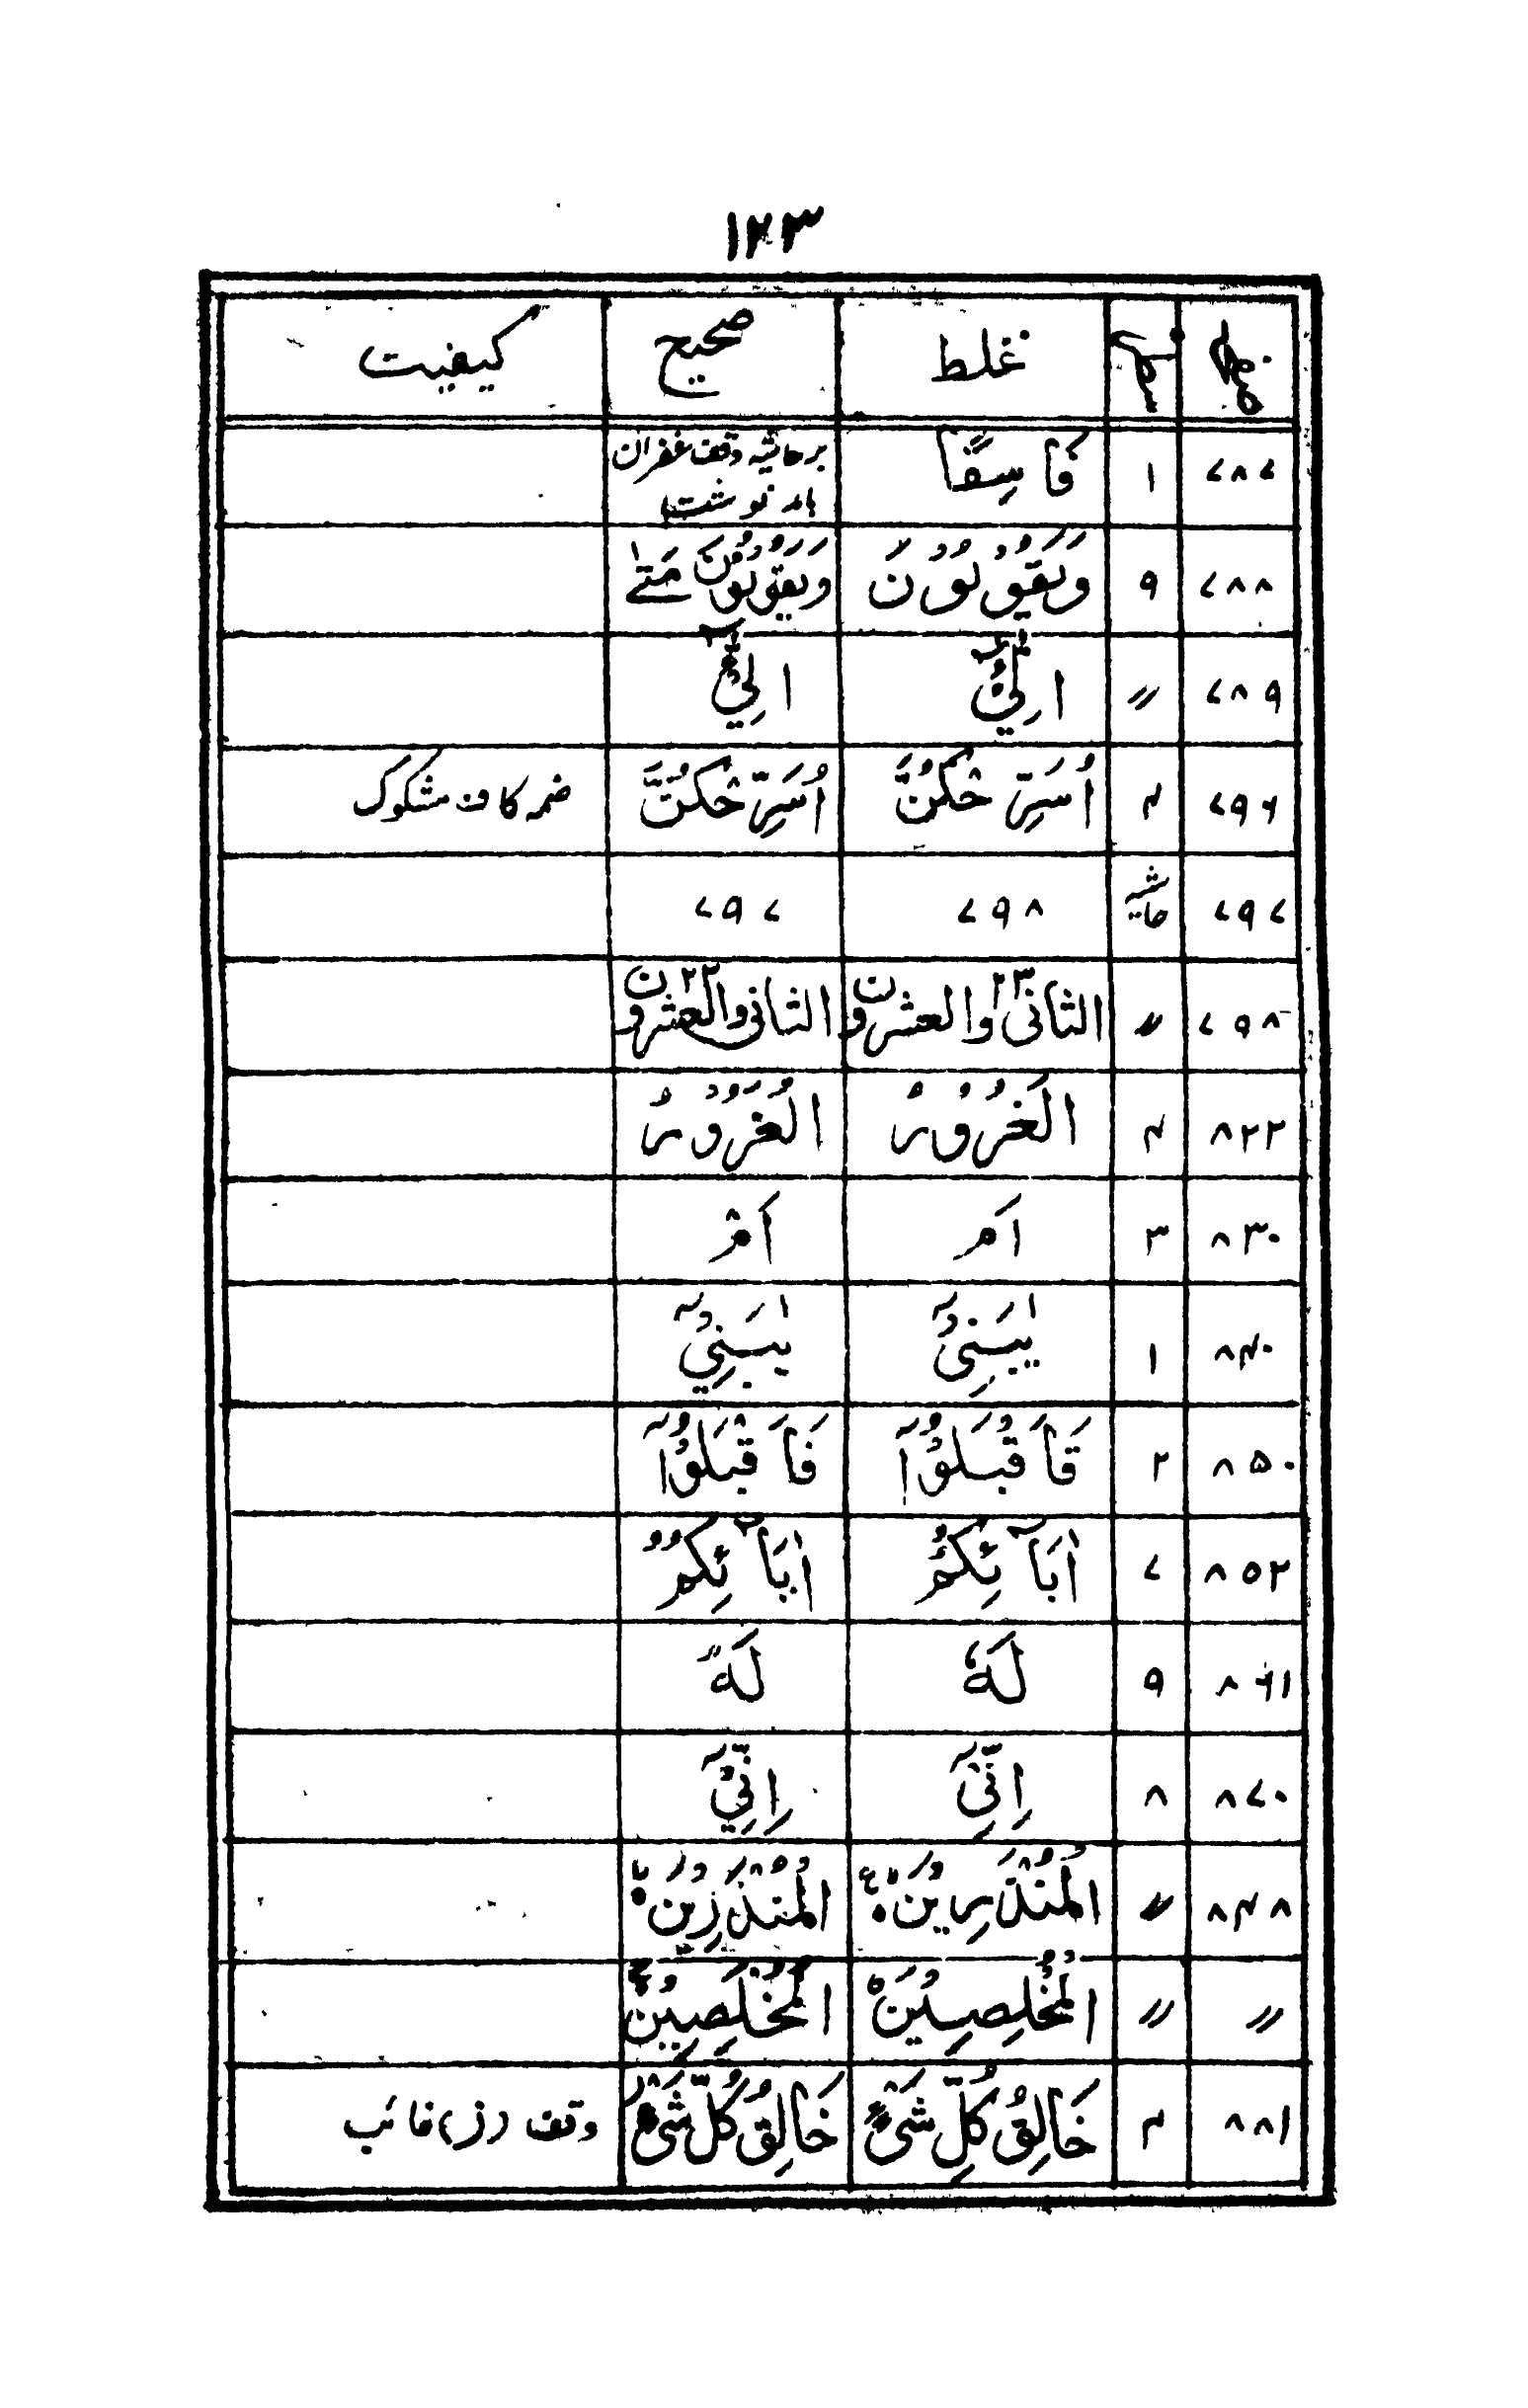 ۱۲۳
صفحہ سطر غلط صحیح کیفیت
۷۸۷ ۱ فَاسِقًا برحاشیہ وقف غفران باید نوشت
۷۸۸ ۹ وَيَقُوْلُوْنَ وَيَقُوْلُوْنَ مَتٰى
۷۸۹ //
۷۹۶ ۴ اُسَرِّحْكُنَّ اُسَرِّحْكُنَّ ضمہ کاف مشکوک
۷۹۷ حاشیہ ۷۹۸ ۷۹۷
۷۹۸ // الثانی والعشرون ۲۳ الثانی والعشرون ۲۲
۸۲۲ ۴ الْغَرُوْرُ الْغَرُوْرُ
۸۳۰ ۳ اَم اَمْ
۸۴۰ ۱ يٰبَنِىْٓ يٰبَنِيْٓ
۸۵۰ ۲ قَاَقْبَلُوْٓا فَاَقْبَلُوْٓا
۸۵۲ ۷ اٰبَآئِكُمُ اٰبَآئِكُمُ
۸۶۱ ۹ لَهٗ لَهً
۸۷۰ ۸ اِنِّىْٓ اِنِّيْٓ
۸۴۸ // الْمُنْذَرِيْنَ الْمُنْذَرِيْنَ
// // الْمُخْلَصِيْنَ الْمُخْلَصِيْنَ
۸۸۱ ۴ خَالِقُ كُلِّ شَىْءٍ خَالِقُ كُلِّ شَىْءٍ وقف (ز) غائب